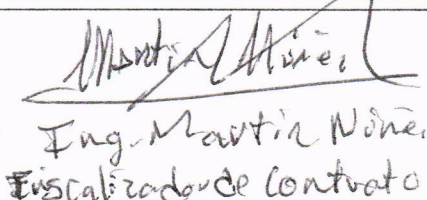 Martin Núñez
Ing. Martin Núñez
Fiscalizador de Contrato